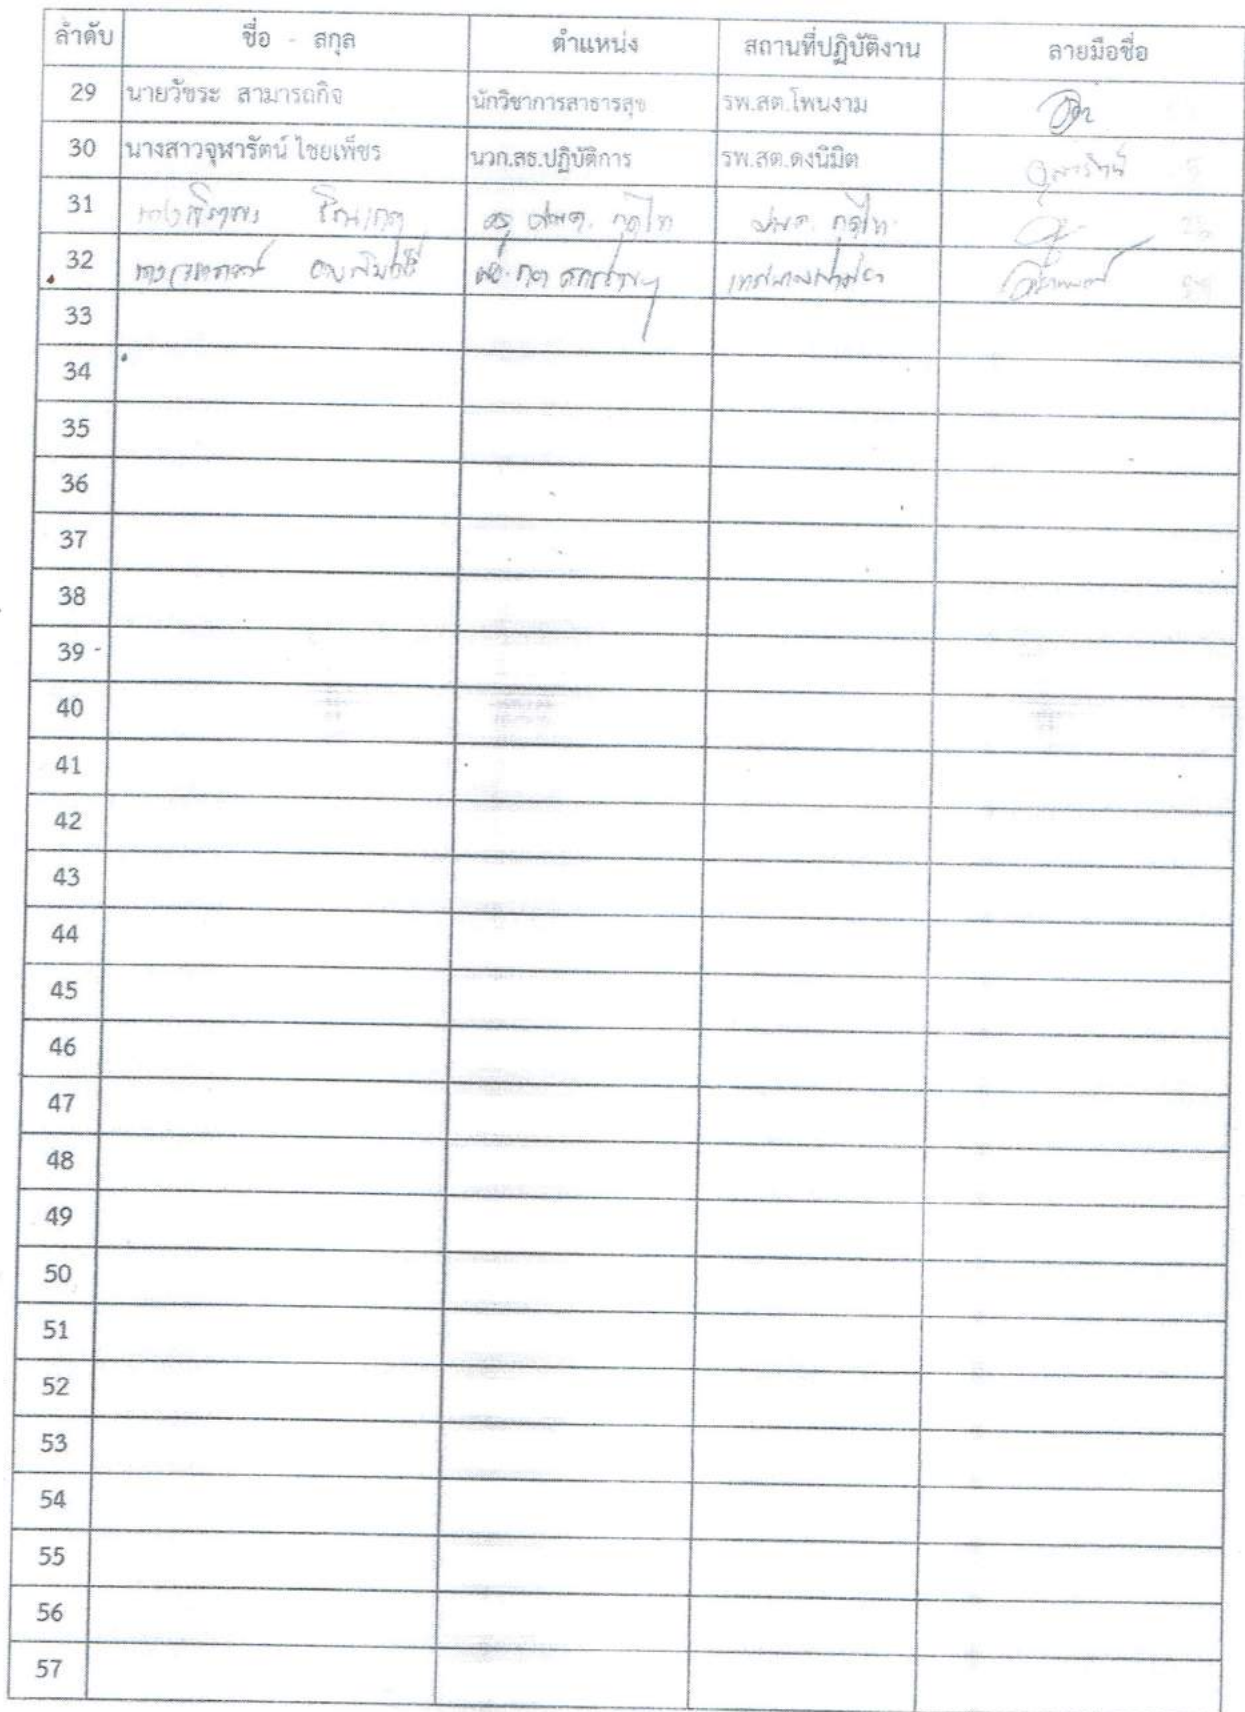 ลำดับ ชื่อ - สกุล ตำแหน่ง สถานที่ปฏิบัติงาน ลายมือชื่อ
29 นายวัชระ สามารถกิจ นักวิชาการสาธารสุข รพ.สต.โพนงาม
30 นางสาวจุฬารัตน์ ไชยเพ็ชร นวก.สธ.ปฏิบัติการ รพ.สต.ดงนิมิต จุฬารัตน์
31 ครู ศพด. กุดไห ศพด. กุดไห
32
33
34
35
36
37
38
39
40
41
42
43
44
45
46
47
48
49
50
51
52
53
54
55
56
57